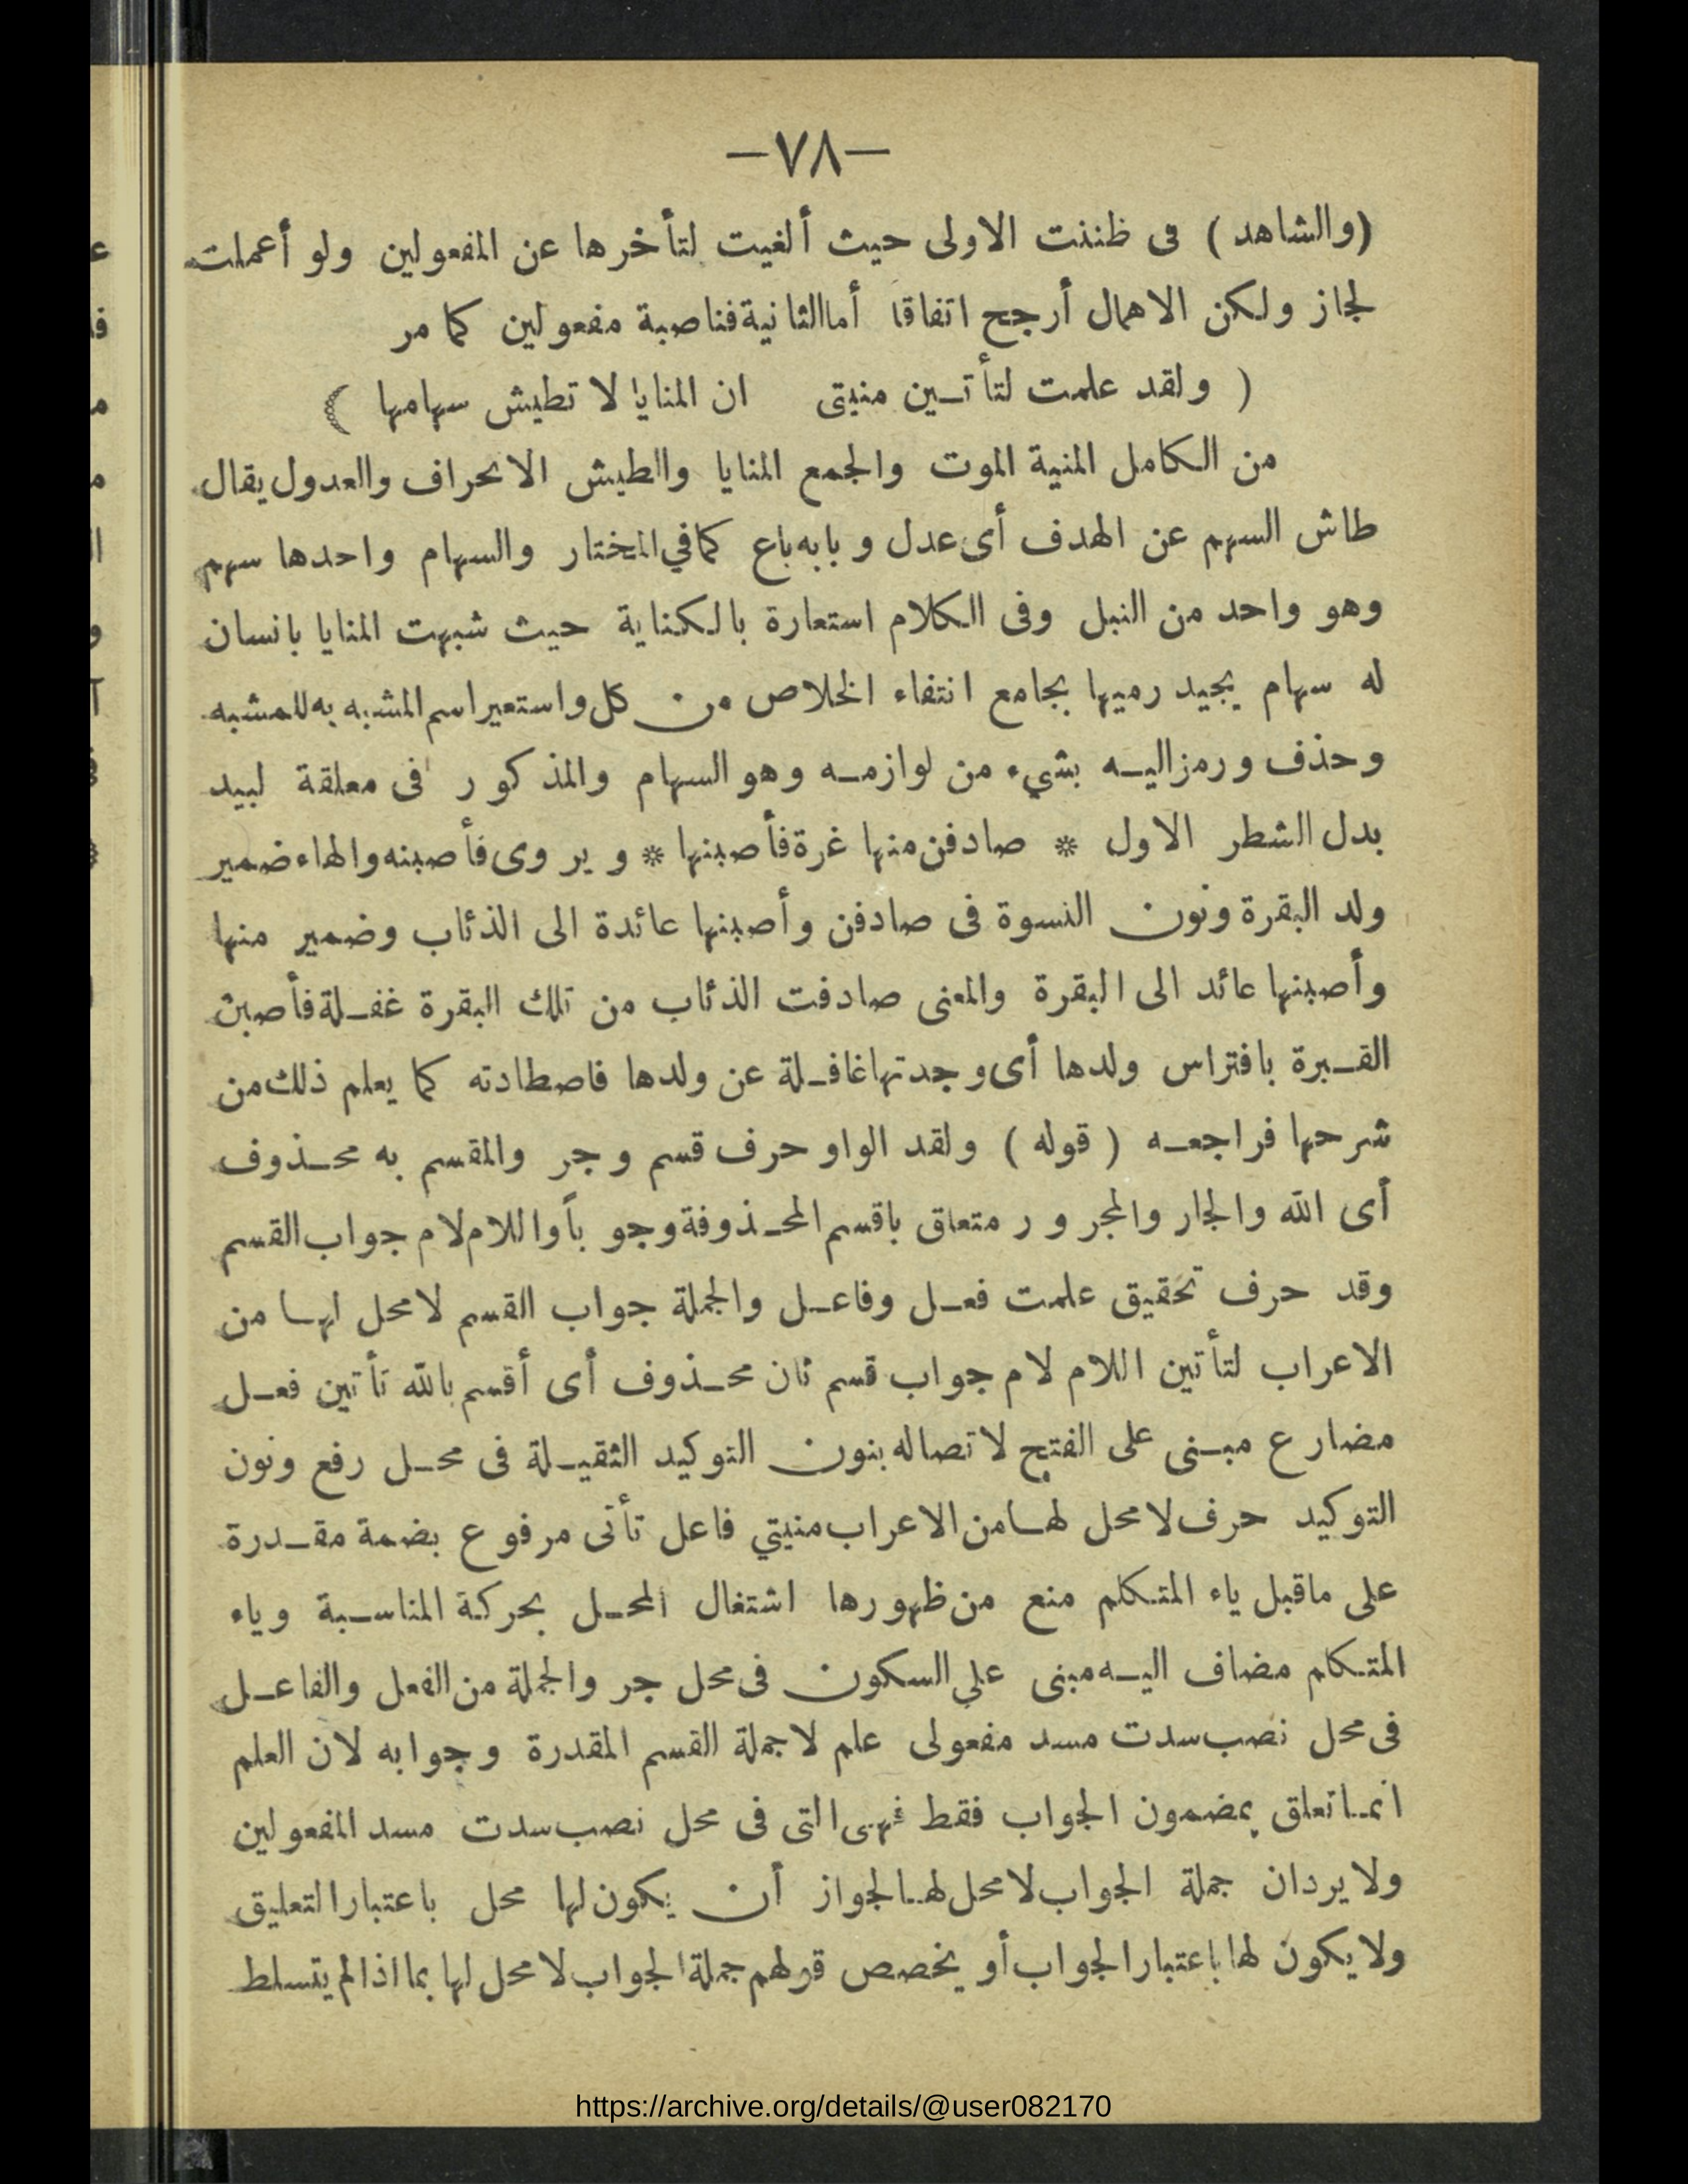 —٧٨—
(والشاهد) فى ظننت الاولى حيث ألغيت لتأخرها عن المفعولين ولو أعملت
لجاز ولكن الاهمال أرجح اتفاقا أما الثانية فناصبة مفعولين كما مر
( ولقد علمت لتأتــين منيتى ان المنايا لا تطيش سهامها )
من الكامل المنية الموت والجمع المنايا والطيش الانحراف والعدول يقال
طاش السهم عن الهدف أى عدل وبابه باع كما في المختار والسهام واحدها سهم
وهو واحد من النبل وفى الكلام استعارة بالكناية حيث شبهت المنايا بانسان
له سهام يجيد رميها بجامع انتفاء الخلاص من كل واستعير اسم المشبه به للمشبه
وحذف ورمز اليــه بشيء من لوازمــه وهو السهام والمذكور فى معلقة لبيد
بدل الشطر الاول * صادفن منها غرة فأصبنها * ويروى فأصبنه والهاء ضمير
ولد البقرة ونون النسوة فى صادفن وأصبنها عائدة الى الذئاب وضمير منها
وأصبنها عائد الى البقرة والمعنى صادفت الذئاب من تلك البقرة غفــلة فأصبن
القــبرة بافتراس ولدها أى وجدتها غافــلة عن ولدها فاصطادته كما يعلم ذلك من
شرحها فراجعــه ( قوله ) ولقد الواو حرف قسم وجر والمقسم به محــذوف
أى الله والجار والمجرور متعلق باقسم المحــذوفة وجوباً واللام لام جواب القسم
وقد حرف تحقيق علمت فعــل وفاعــل والجملة جواب القسم لا محل لهــا من
الاعراب لتأتين اللام لام جواب قسم ثان محــذوف أى أقسم بالله تأتين فعــل
مضارع مبــنى على الفتح لاتصاله بنون التوكيد الثقيــلة فى محــل رفع ونون
التوكيد حرف لا محل لهــا من الاعراب منيتي فاعل تأتى مرفوع بضمة مقــدرة
على ماقبل ياء المتكلم منع من ظهورها اشتغال المحــل بحركة المناســبة وياء
المتكلم مضاف اليــه مبنى على السكون فى محل جر والجملة من الفعل والفاعــل
فى محل نصب سدت مسد مفعولى علم لا جملة القسم المقدرة وجوابه لان العلم
انمــا تعلق بمضمون الجواب فقط فهى التى فى محل نصب سدت مسد المفعولين
ولا يرد ان جملة الجواب لا محل لهــا لجواز أن يكون لها محل باعتبار التعليق
ولا يكون لها باعتبار الجواب أو يخصص قولهم جملة الجواب لا محل لها بما اذا لم يتسلط
https://archive.org/details/@user082170